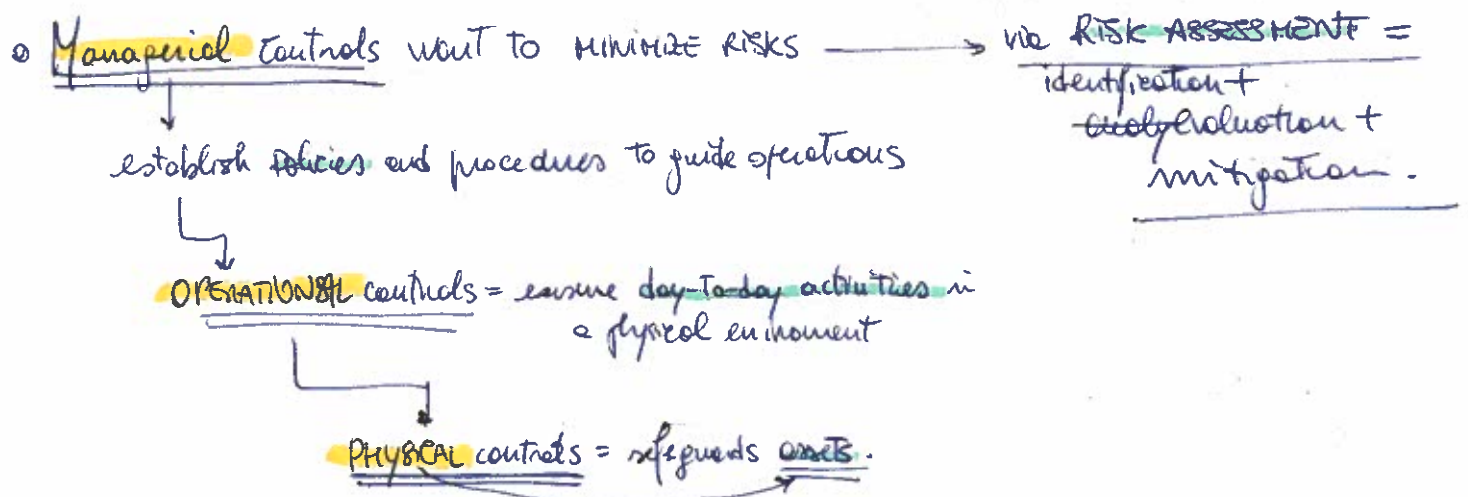 Managerial controls want to MINIMIZE RISKS → via RISK ASSESSMENT =
identification +
evaluation +
mitigation.
establish policies and procedures to guide operations
OPERATIONAL controls = ensure day-to-day activities in
a physical enviroment
PHYSICAL controls = safeguards assets.